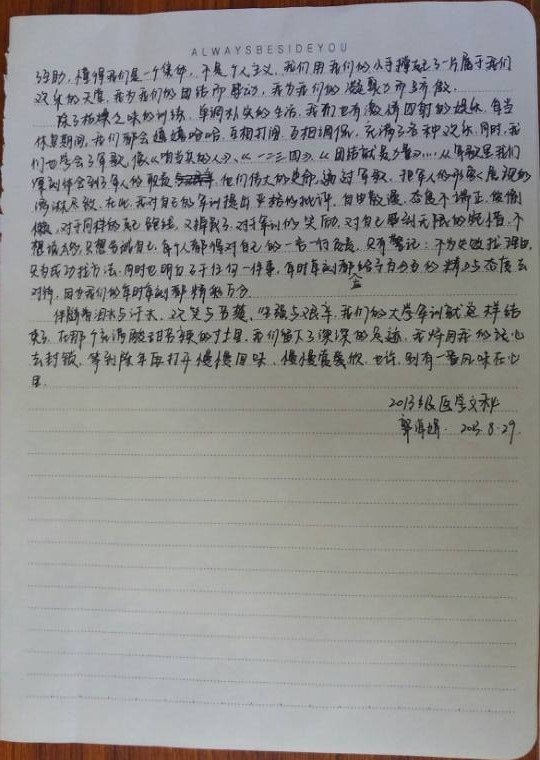 ALWAYSBESIDEYOU
互助，懂得我们是一个集体，不是个人主义。我们用我们的小手撑起了一片属于我们
欢乐的天度，我为我们的团结而感动，我为我们的凝聚力而骄傲。
除了枯燥乏味的训练，单调朴实的生活，我们也有激情四射的娱乐，每当
休息期间，我们都会嘻嘻哈哈，互相打闹，互相调侃，充满了各种欢乐。同时，我
们也学会了军歌，像《咱当兵的人》、《一二三四》、《团结就是力量》……从军歌里我们
深刻体会到了军人的职责，他们伟大的使命，通过军歌，把军人的形象展现的
淋漓尽致。在此，我对自己的军训提出严格的批评，自由散漫，态度不端正，偷偷
懒，对于同样的起跑线，又掉队了。对于军训的失励，对自己感到无限的惋惜，不
想说太多，只想告诫自己，每个人都得对自己的一言一行负责，只有谨记：不为失败找理由，
只为成功找方法。同时也明白了于任何一件事，每时每刻都给予百分百的精力与态度去
会
对待，因为我们的每时每刻都精彩万分。
伴随着泪水与汗水，欢笑与苦楚，坚强与艰辛，我们的大学军训就这样结
束了，在那个充满酸甜苦辣的土里，我们留下了深深的足迹，我将用我的记忆
去封锁，等到陈年再打开慢慢回味，慢慢赏，也许，别有一番风味在心
里。
2013级医学文科
2013.8.29